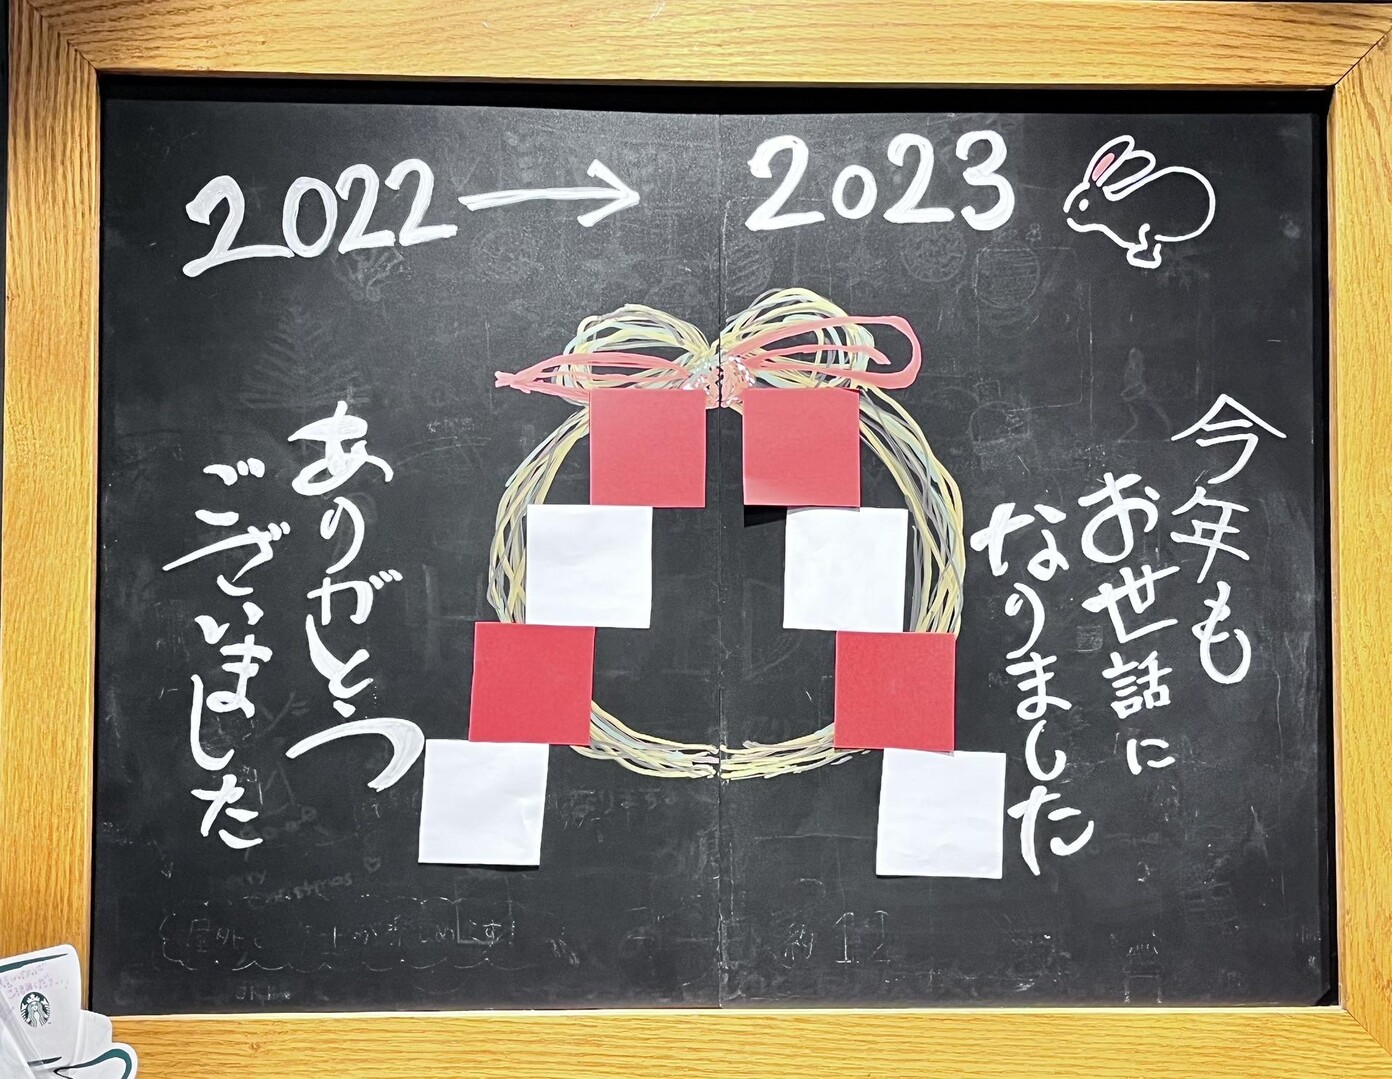 2022→2023
今年も
お世話に
なりました
ありがとう
ございました